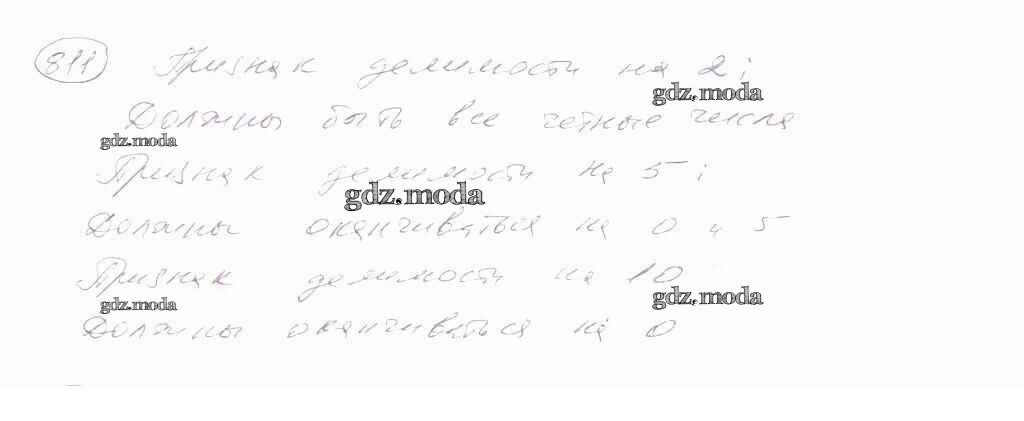 811 Признак делимости на 2:
gdz.moda
Должны быть все четные числа
gdz.moda
Признак делимости на 5:
gdz.moda
Должны оканчиваться на 0 и 5
Признак делимости на 10
gdz.moda gdz.moda
Должны оканчиваться на 0